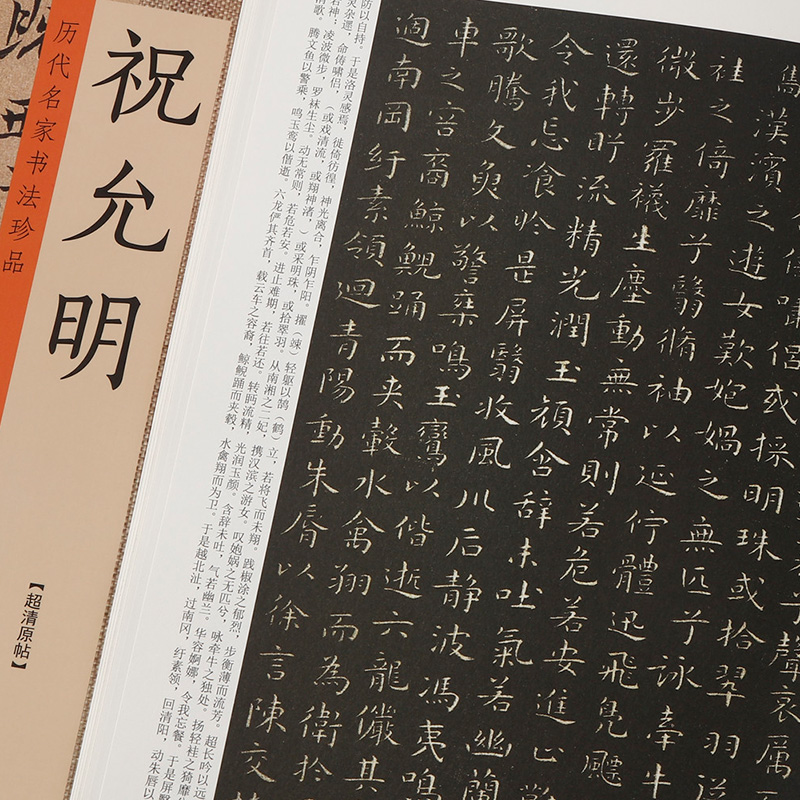 历代名家书法珍品
祝允明
【超清原帖】
防以自持。于是洛灵感焉，徙倚彷徨，神光离合，乍阴乍阳。擢（竦）轻躯以鹄（鹤）立，若将飞而未翔。践椒涂之郁烈，步衡薄而流芳。超长吟以远
灵杂遝，命俦啸侣，（或戏清流，或翔神渚，）或采明珠，或拾翠羽。从南湘之二妃，携汉滨之游女。叹匏娲之无匹兮，咏牵牛之独处。扬轻袿之猗靡
若神；凌波微步，罗袜生尘。动无常则，若危若安。进止难期，若往若还。转眄流精，光润玉颜。含辞未吐，气若幽兰。华容婀娜，令我忘餐。于是屏翳
清歌。腾文鱼以警乘，鸣玉鸾以偕逝。六龙俨其齐首，载云车之容裔，鲸鲵踊而夹毂，水禽翔而为卫。于是越北沚，过南冈，纡素领，回清阳，动朱唇以
聲哀厲
嘯侶或採明珠或拾翠羽
漢濱之遊女歎匏媧之無匹兮詠牽牛
袿之猗靡兮翳脩袖以延佇體迅飛鳧飄
微步羅襪生塵動無常則若危若安進止
還轉眄流精光潤玉顏含辭未吐氣若幽蘭
令我忘飡於是屏翳收風川后靜波馮夷鳴
歌騰文魚以警乘鳴玉鸞以偕逝六龍儼其
車之容裔鯨鯢踊而夾轂水禽翔而為衛於
過南岡紆素領迴青陽動朱脣以徐言陳交